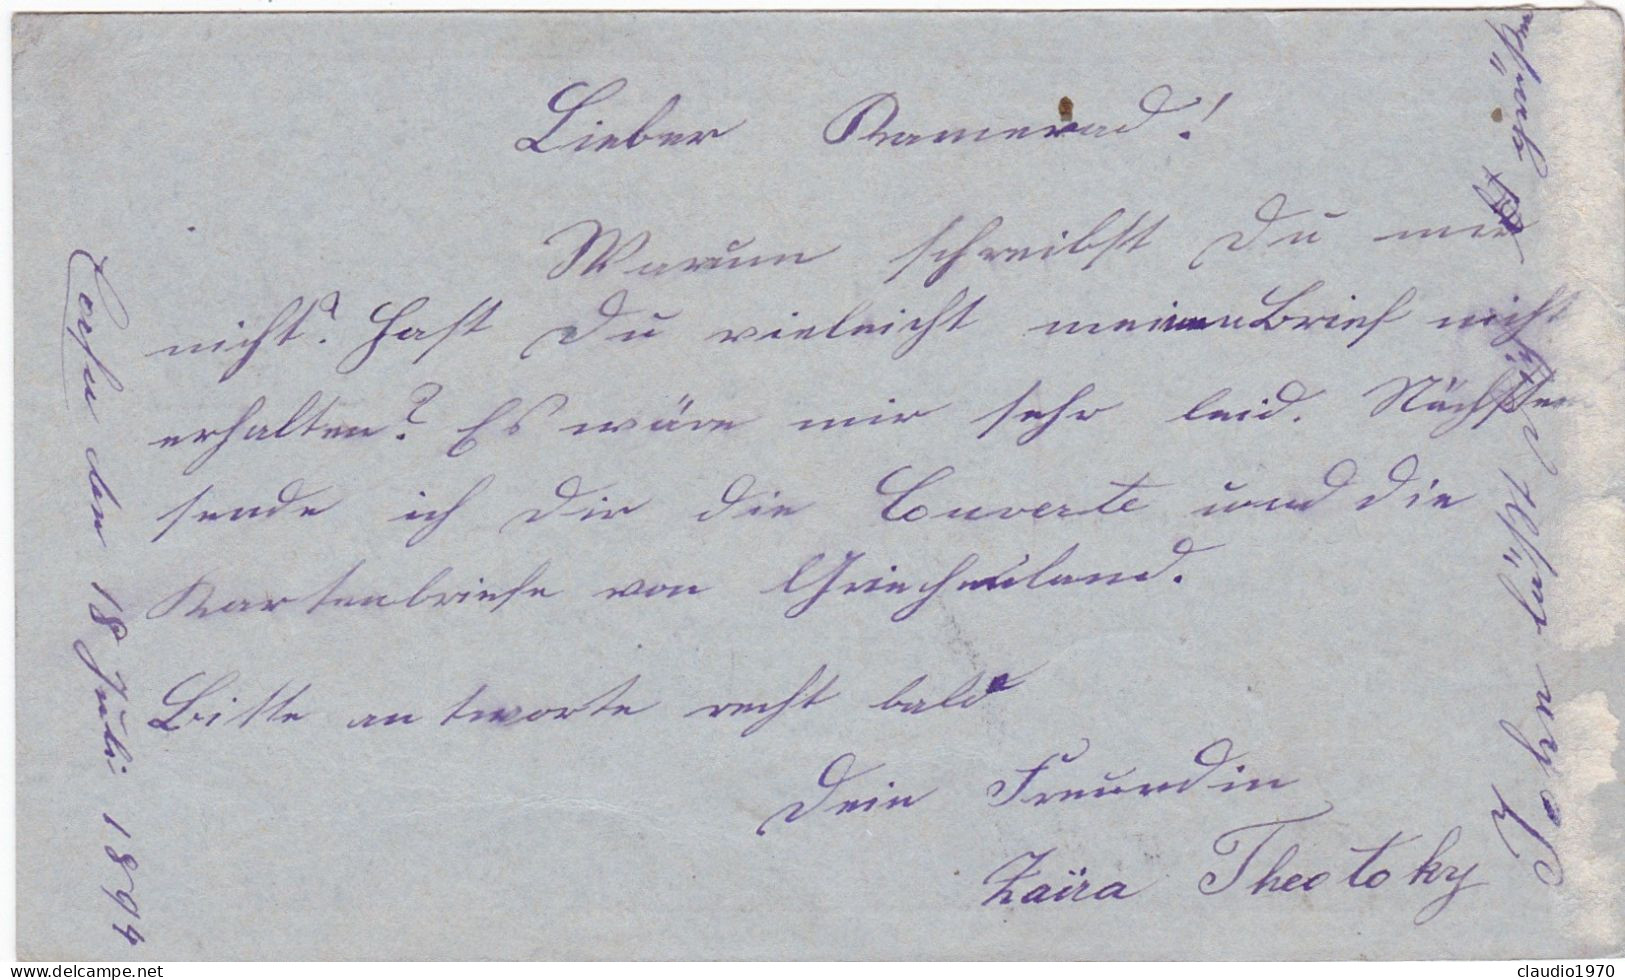 Corfu den 18 Juli 1894
Lieber Kamerad!
Warum schreibst Du mir
nicht? Hast Du vieleicht meinen Brief nicht
erhalten? Es wäre mir sehr leid. Nächstens
sende ich Dir die Couverte und die
Kartenbriefe von Griechenland.
Bitte antworte recht bald
Dein Freundin
Zaïra Theotoky
John läßt Dich grüßen
claudio1970
www.delcampe.net